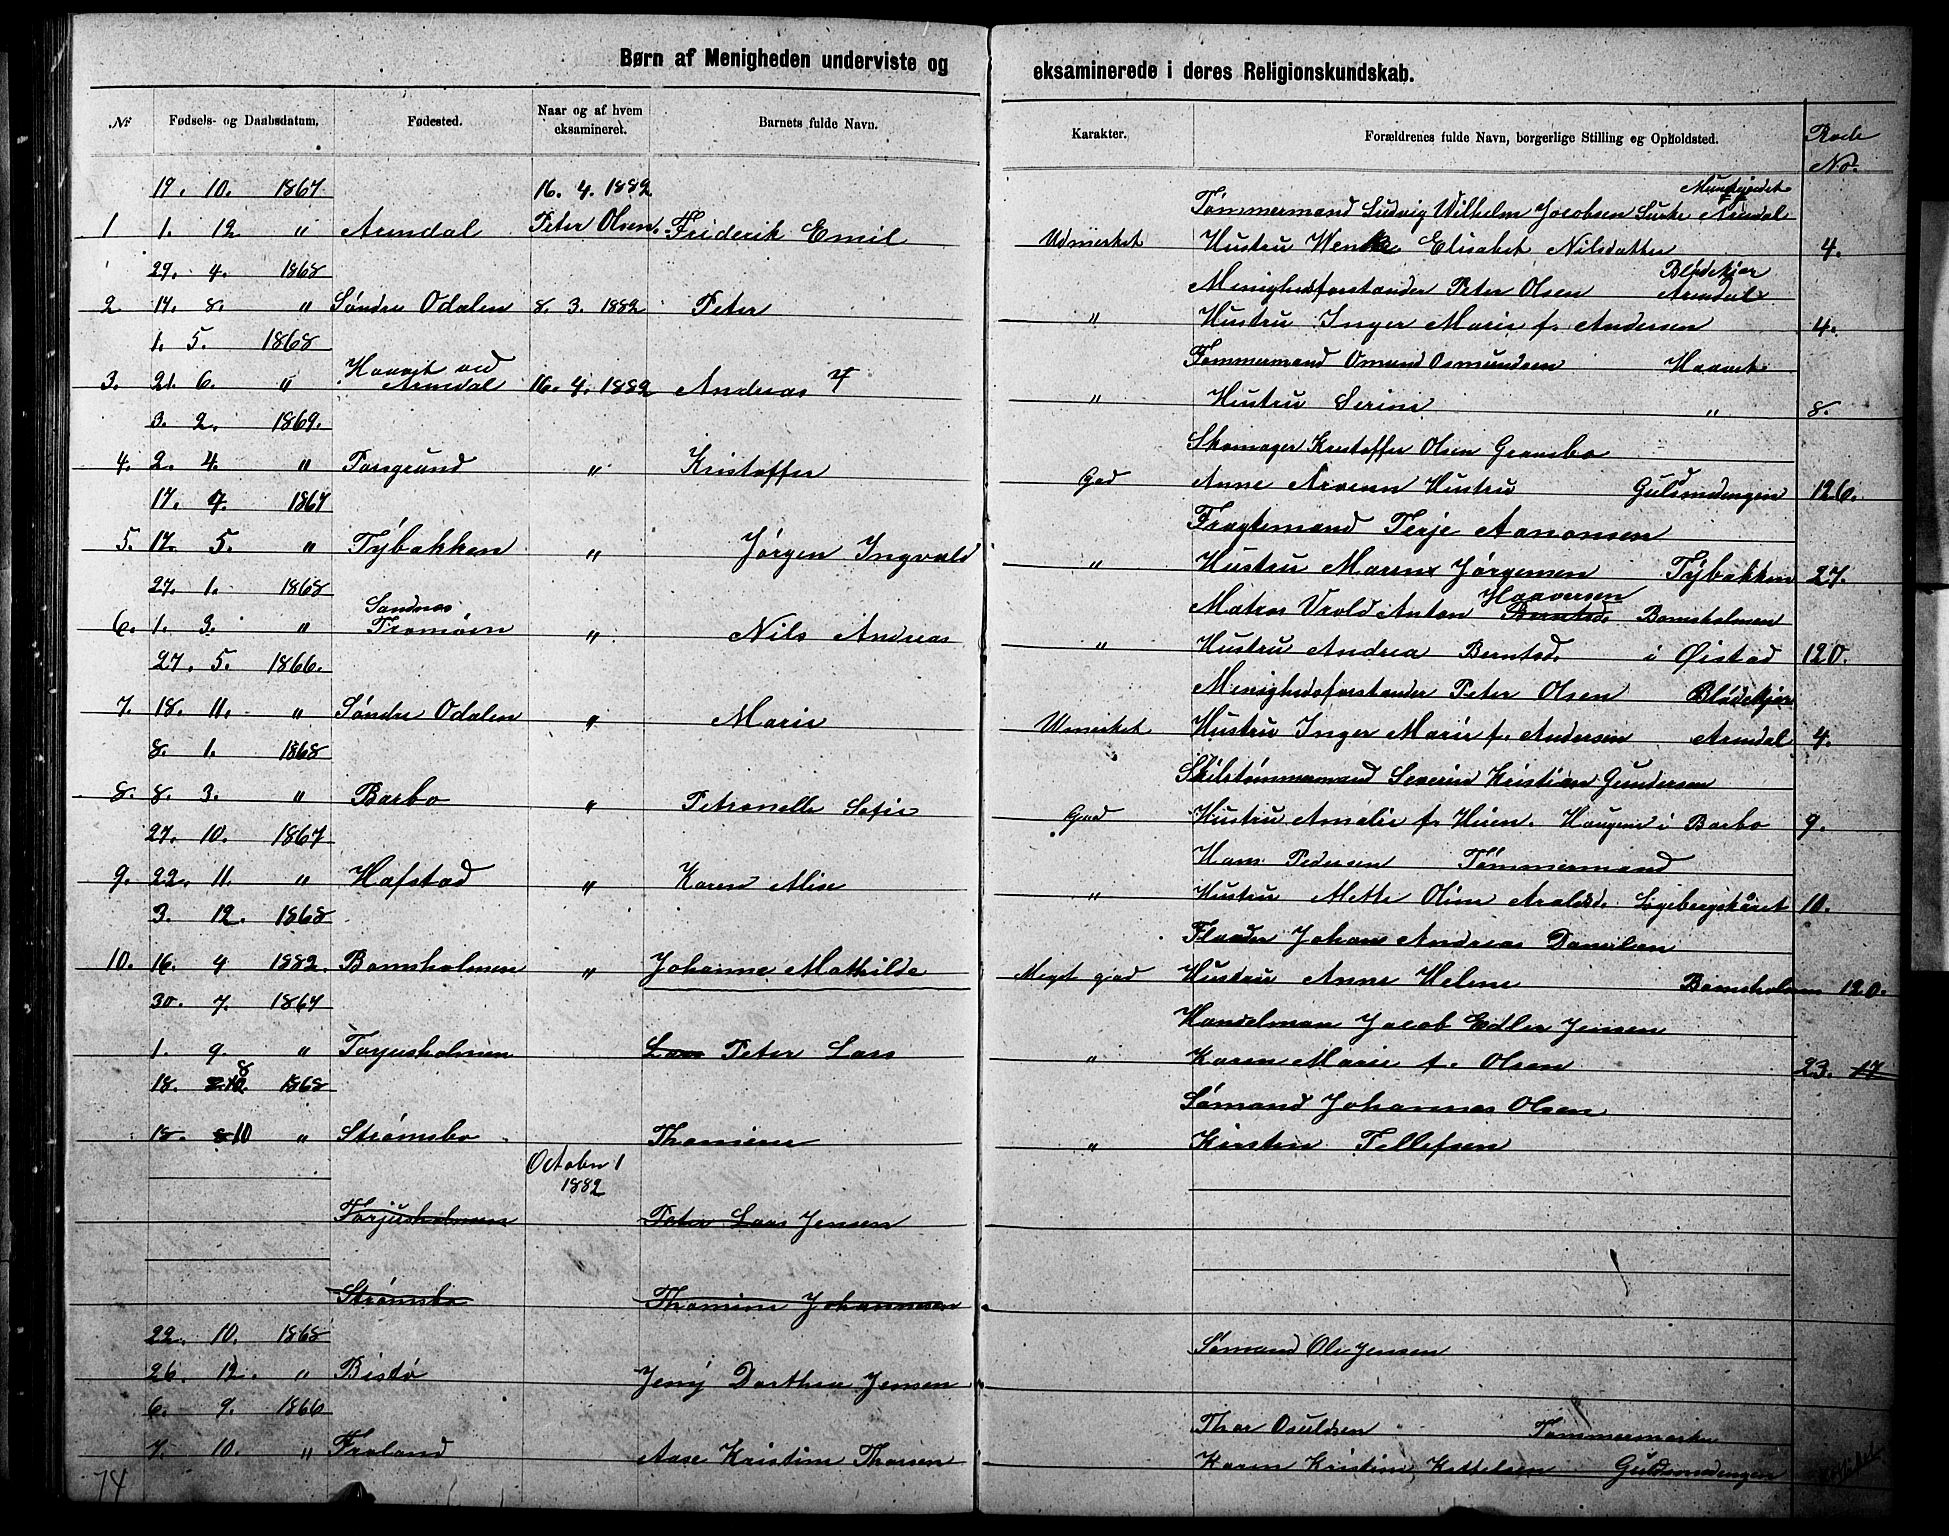 Børn af Menigheden underviste og eksaminerede i deres Religionskundskab.
№ Fødsels- og Daabsdatum. Fødested. Naar og af hvem eksamineret. Barnets fulde Navn. Karakter. Forældrenes fulde Navn, borgerlige Stilling og Opholdsted. Rode No.
19. 10. 1867 16. 4. 1882 Tømmermand Ludvig Wilhelm Jacobsen Arendal
1 1. 12 " Arendal Peter Olsen. Friderik Emil Udmerket Hustru Elisabet Nilsdatter 4.
29. 4. 1868 Menighedsforstander Peter Olsen Blødekjær Arendal
2 17. 8. " Søndre Odalen 8. 3. 1882 Peter " Hustru Inger Marie f. Andersen 4.
1. 5. 1868 Tømmermand Omund Osmundsen Haavet
3. 21. 6. " Haavet ved Arendal 16. 4. 1882 Andreas " Hustru Serine " 8.
3. 2. 1869. Skomager Kristoffer Olsen Gransbo
4. 2. 4. " Porsgrund " Kristoffer God Anne Hustru Gulsmedengen 126.
17. 4. 1867 Fragtemand Terje Aanonsen
5. 17. 5. " Tybakken " Jørgen Ingvald " Hustru Maren Jørgensen Tybakken 27.
27. 1. 1868 Matros Anton Haaversen Berntsd. Bomsholmen
6. 1. 3. " Sandnes Tromøen " Nils Andreas " Hustru Andrea Berntsd. i Øistad 120.
27. 5. 1866. Menighedsforstander Peter Olsen Blødekjær
7. 18. 11. " Søndre Odalen " Marie Umerket Hustru Inger Marie f. Andersen Arendal 4.
8. 1. 1868 Skibstømmermand Severin Kristian Gundersen
8. 8. 3. " Barbo " Petronelle Sofie Good Hustru Amalie f. Haugene i Barbo 9.
27. 10. 1867 Hans Pedersen Tømmermand
9. 22. 11. " Hafstad " Karen Alise " Hustru Mette Oline 10.
3. 12. 1868 Johan Andreas Danielsen
10. 16. 4 1882. Bomsholmen " Johanne Mathilde Meget good Hustru Anne Helene Bomsholmen 120.
30. 7. 1867 Handelman Jacob Edler Jensen
1. 9. " Torjusholmen Lars Peter Lars " Karen Marie f. Olsen 23. 17
18. 8 1868 Sømand Johannes Olsen
18. 10 " Strømsbo Thomine " Kirsten Tellefsen
October 1 1882
Torjusholmen Peter Laas Jensen
Strømsbo Thomine Johannesen
22. 10. 1868 Sømand Ole Jensen
26. 12. " Bistø Jeny Dorthea Jensen
6. 9. 1866 Thor Osuldsen
7. 10. " Froland Aase Kristine Thorsen Karen Kristine Kettelsen Guldsmedengen
74